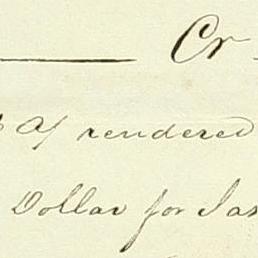 Cr
A/ rendered
Dollar for Jas